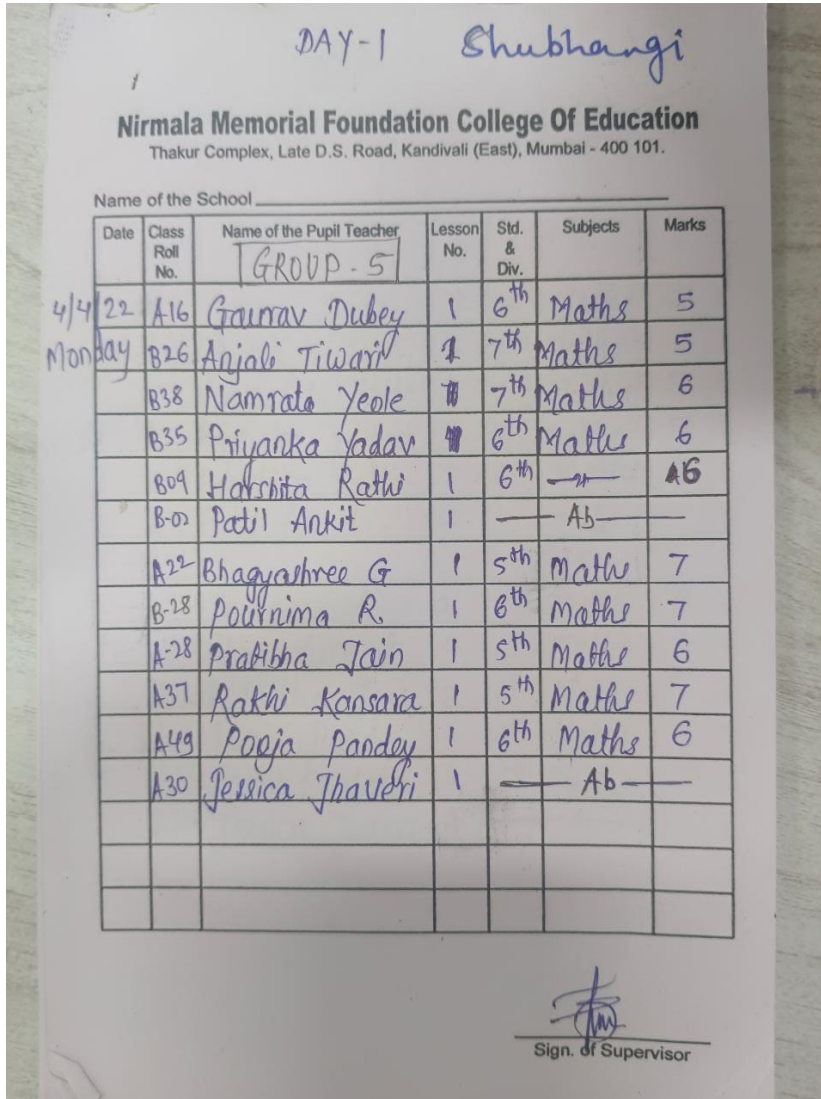 DAY-1 Shubhangi
Nirmala Memorial Foundation College Of Education
Thakur Complex, Late D.S. Road, Kandivali (East), Mumbai - 400 101.
Name of the School
Date Class Roll No. Name of the Pupil Teacher Lesson No. Std. & Div. Subjects Marks
GROUP-5
4/4/22 A16 Gaurav Dubey 1 6th Maths 5
Monday B26 Anjali Tiwari 1 7th Maths 5
B38 Namrata Yeole 7th Maths 6
B35 Priyanka Yadav 6th Maths 6
B09 Harshita Rathi 1 6th 6
Patil Ankit 1 Ab
A22 Bhagyashree G 1 5th Maths 7
B-28 Pournima R. 1 6th Maths 7
A-28 Pratibha Jain 1 5th Maths 6
A37 Rakhi Kansara 1 5th Maths 7
A49 Pooja Pandey 1 6th Maths 6
A30 Jessica Jhaveri 1 Ab
Sign. of Supervisor